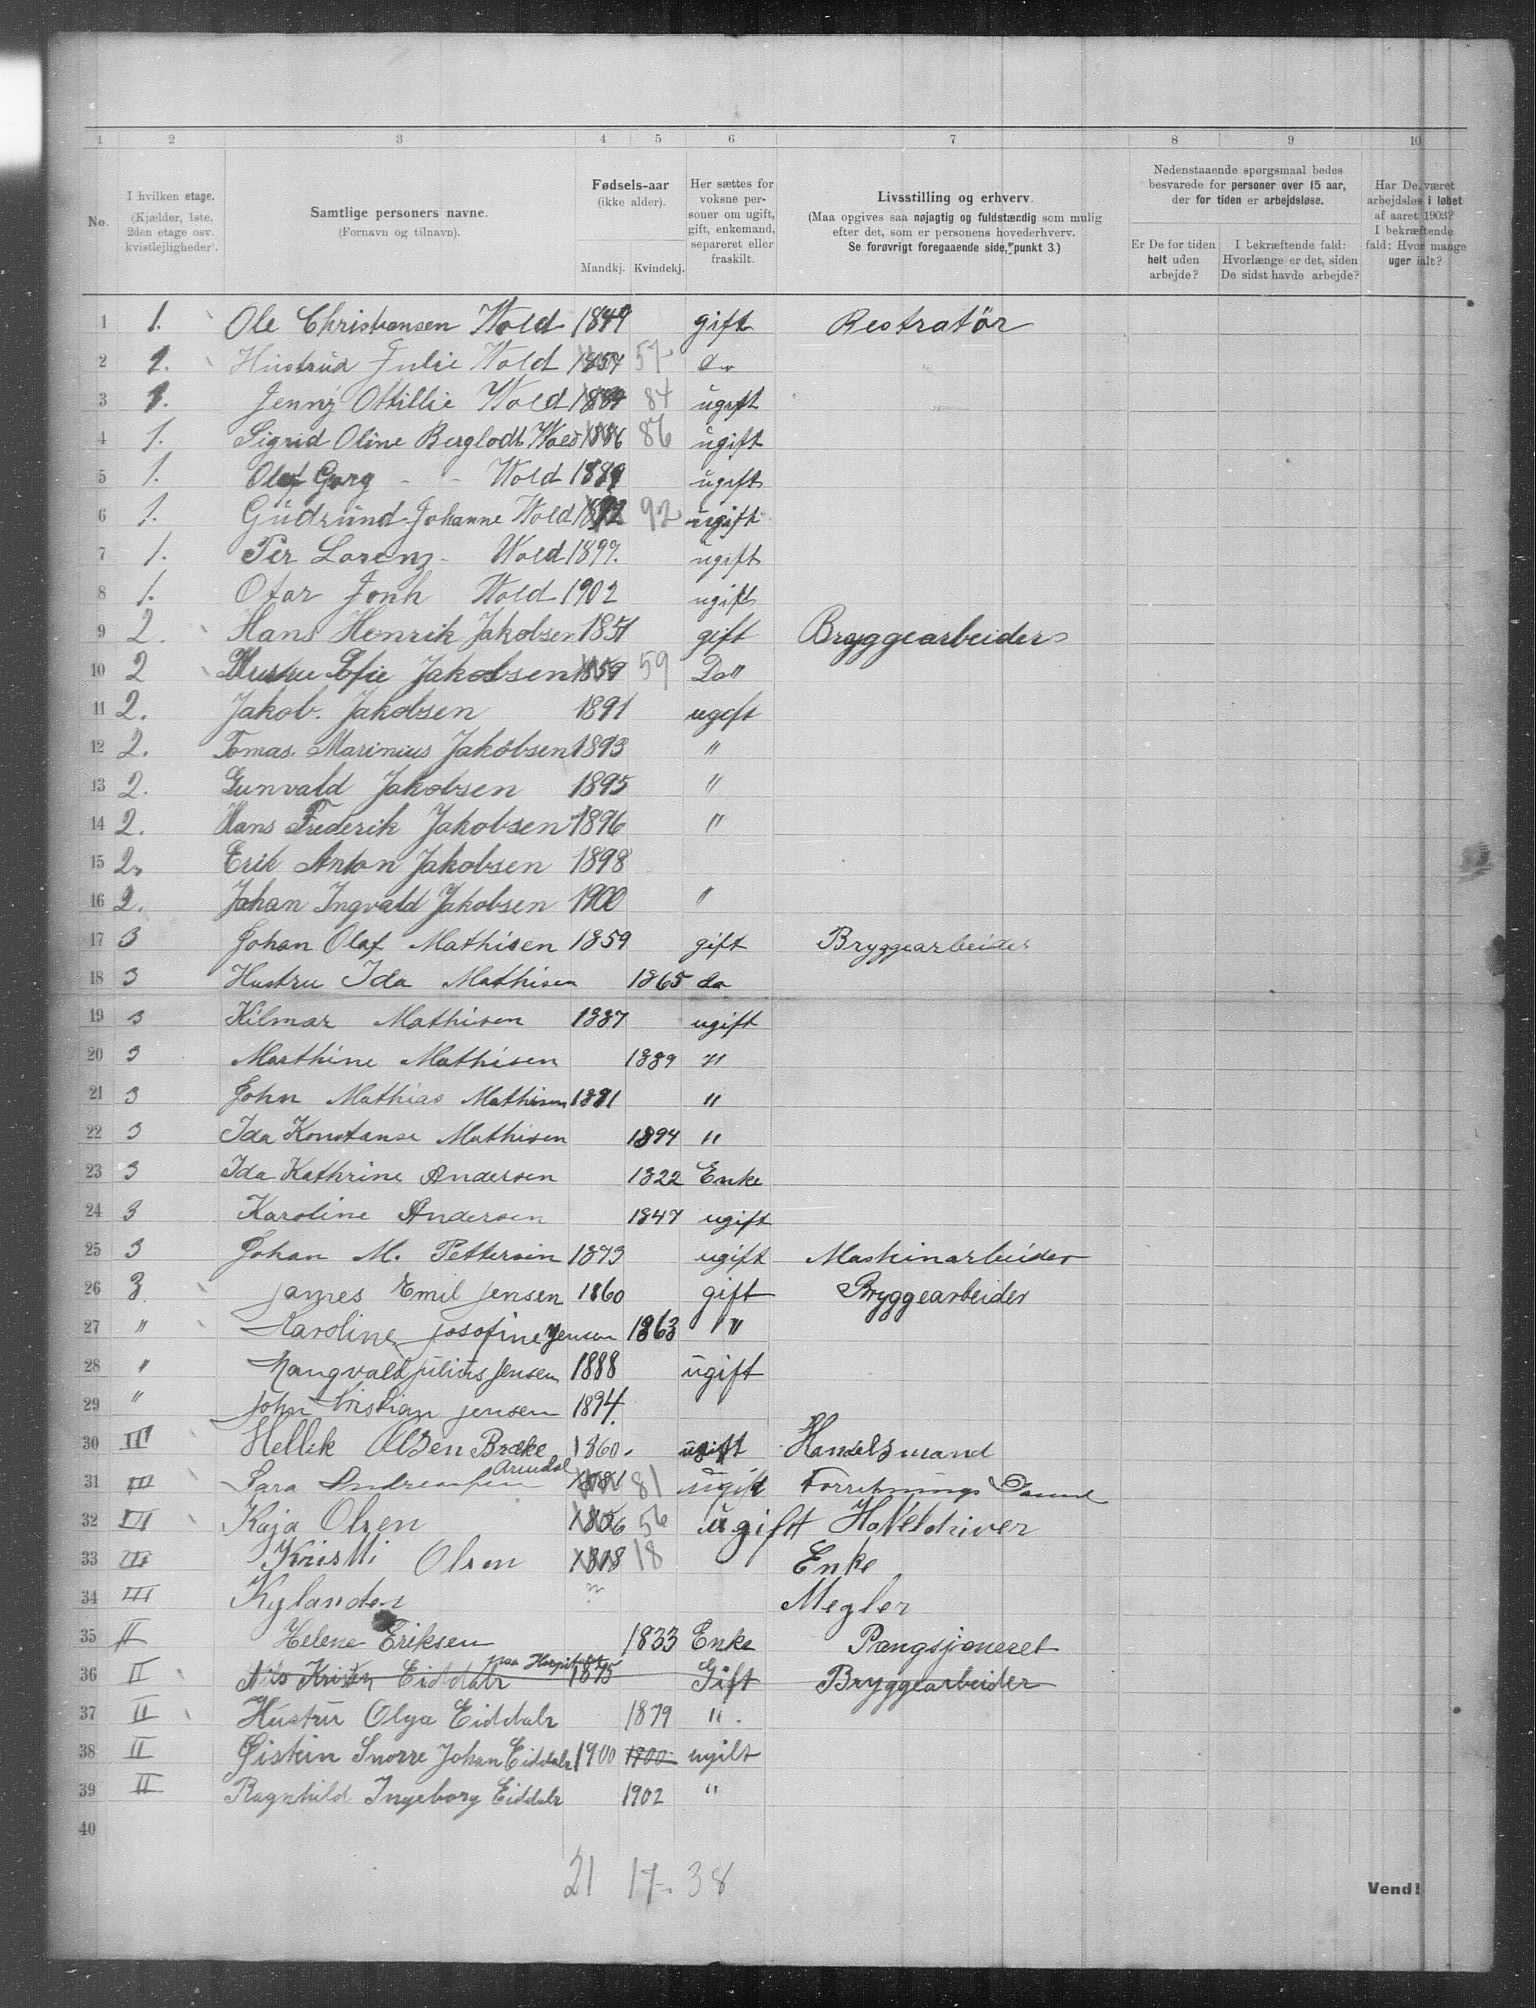 1 2 3 4 5 6 7 8 9 10
No.
I hvilken etage. (Kjælder, 1ste, 2den etage osv. kvistlejligheder).
Samtlige personers navne. (Fornavn og tilnavn).
Fødsels-aar (ikke alder). Mandkj. Kvindekj.
Her sættes for voksne personer om ugift, gift, enkemand, separeret eller fraskilt.
Livsstilling og erhverv. (Maa opgives saa nøjagtig og fuldstændig som mulig efter det, som er personens hovederhverv. Se forøvrigt foregaaende side, punkt 3.)
Nedenstaaende spørgsmaal bedes besvarede for personer over 15 aar, der for tiden er arbejdsløse.
Er De for tiden helt uden arbejde?
I bekræftende fald: Hvorlænge er det, siden De sidst havde arbejde?
Har De været arbejdsløs i løbet af aaret 1903? I bekræftende fald: Hvor mange uger ialt?
1 1. Ole Christiansen Wold 1849 gift Restratør
2 1. Hustrud Julie Wold 1857 57 do
3 1. Jenny Ottillie Wold 1884 84 ugift
4 1. Sigrid Oline Berglodt Wold 1886 86 ugift
5 1. Olaf Gorg - - Wold 1889 ugift
6 1. Gudrund Johanne Wold 1892 92 ugift
7 1. Per Lorenz - Wold 1897. ugift
8 1. Otar Jonh Wold 1902 ugift
9 2. Hans Henrik Jakobsen 1851 gift Bryggearbeider
10 2 Hustru Efie Jakobsen 1859 59 Do"
11 2. Jakob. Jakobsen 1891 ugift
12 2. Tomas Marinius Jakobsen 1893 "
13 2. Gunvald Jakobsen 1895 "
14 2. Hans Frederik Jakobsen 1896 "
15 2. Erik Anton Jakobsen 1898
16 2. Johan Ingvald Jakobsen 1900 "
17 3 Johan Olaf Mathisen 1859 gift Bryggearbeider
18 3 Hustru Ida Mathisen 1865 do
19 3 Hilmar Mathisen 1887 ugift
20 3 Marthine Mathisen 1889 "
21 3 John Mathias Mathisen 1891 "
22 3 Ida Konstanse Mathisen 1894 "
23 3 Ida Kathrine Andersen 1822 Enke
24 3 Karoline Andersen 1847 ugift
25 3 Johan M. Pettersin 1873 ugift Maskinarbeider
26 3 James Emil Jensen 1860 gift Bryggearbeider
27 " Karoline Josofine Jensen 1863 "
28 " Mangvald Julius Jensen 1888 ugift
29 " John Cristian Jensen 1894.
30 III Hellik Olsen Bræke 1860. ugift Handelsmand
31 III Sara Andreassen Arendal 1881 81 ugift Forretnings Dame
32 III Kaja Olsen 1856 56 ugift Hoteldriver
33 III Kristti Olsen 1818 18 Enke
34 III Kylander ? Megler
35 II Helene Eriksen 1833 Enke Pangsjoneret
36 II Nils Kristen Eiddalr paa Hospitalet 1875 Gift Bryggearbeider
37 II Hustru Olga Eiddalr 1879 " .
38 II Øistein Snorre Johan Eiddalr 1900 1900 ugift
39 II Ragnhild Ingeborg Eiddalr 1902 "
40
21 17 - 38
Vend!